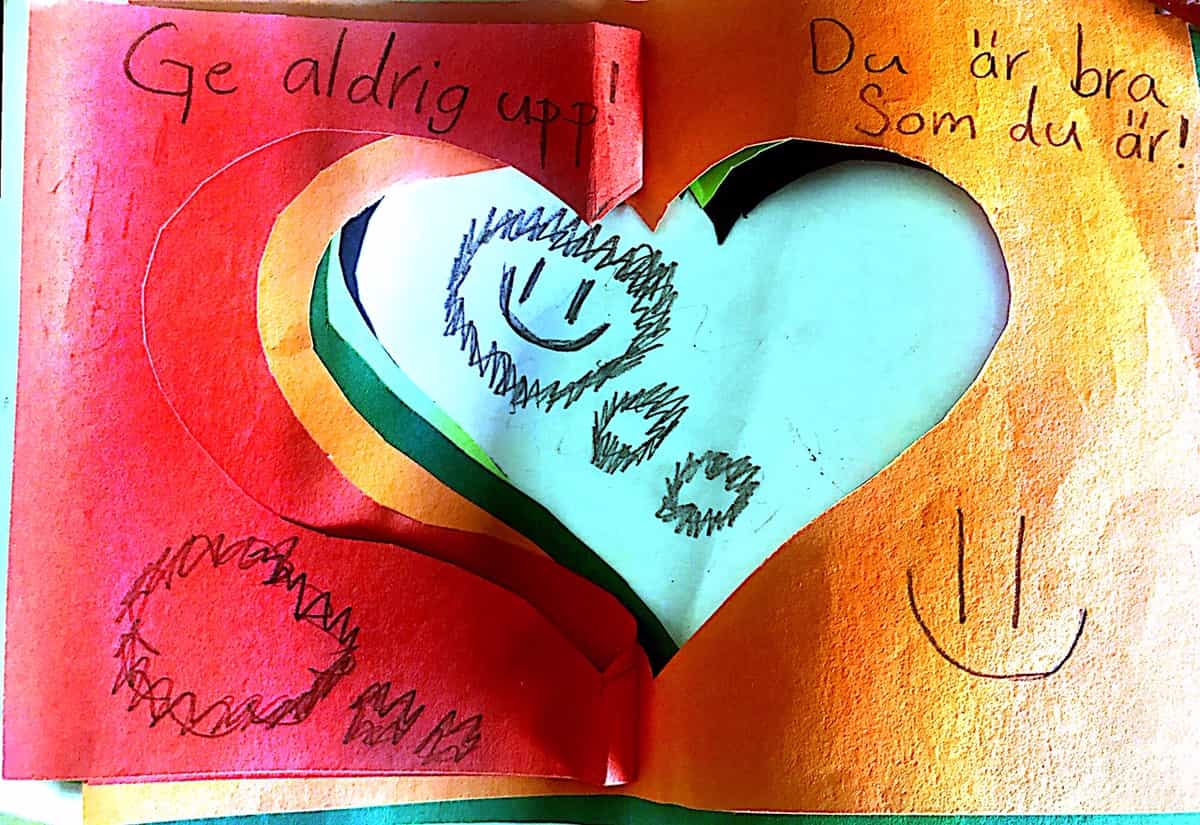 Ge aldrig upp!
Du är bra
Som du är!